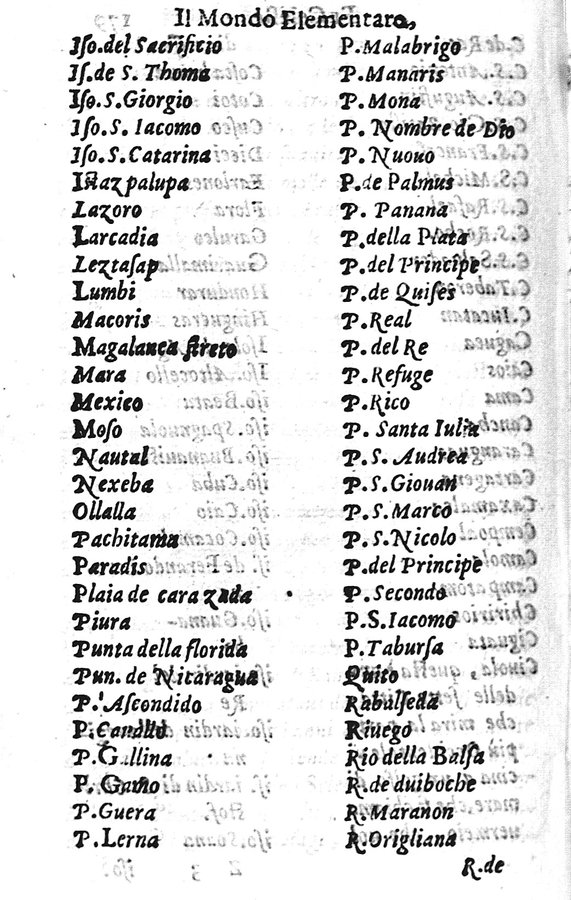 Il Mondo Elementare,
Iſo.del Sacrificio
Iſ.de S. Thoma
Iſo.S.Giorgio
Iſo.S. Iacomo
Iſo.S.Catarina
Lazoro
Larcadia
Leztaſap
Lumbi
Macoris
Magalanea ſtreto
Mara
Mexico
Moſo
Nautal
Nexeba
Ollalla
Pachitama
Paradis
Plaia de carazada
Piura
Punta della florida
Pun. de Nicaragua
P. Aſcondido
P.Gallina
P.Guera
P.Lerna
P.Malabrigo
P.Manaris
P.Mona
P.Nombre de Dio
P.Nuouo
P.de Palmus
P. Panana
P.della Plata
P.del Principe
P.de Quiſes
P.Real
P.del Re
P.Refuge
P.Rico
P. Santa Iulia
P.S. Audrea
P.S.Giouan
P.S.Marco
P.S.Nicolo
P.del Principe
P.Secondo
P.S.Iacomo
P.Taburſa
Quito
Rabalſeda
Riuego
Rio della Balſa
R.de duiboche
R.Maranon
R.Origliana
R.de